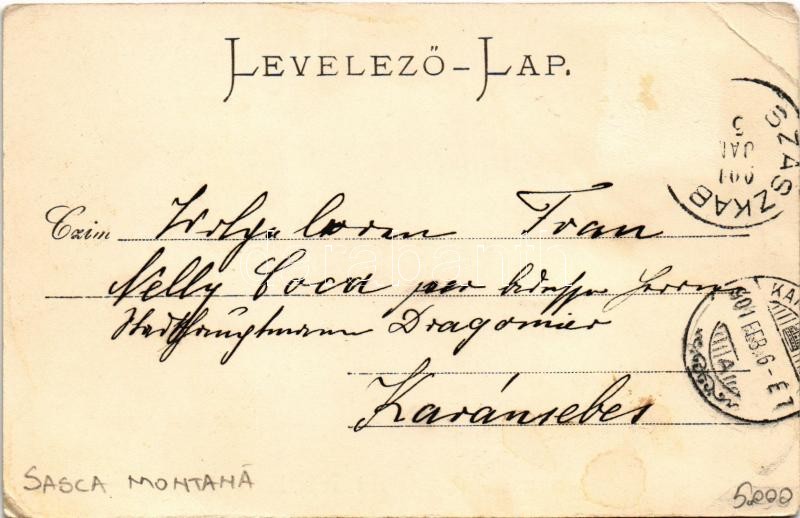 LEVELEZŐ-LAP.
SZÁSZKAB
901 JAN 5
Czim Wolgeboren Frau
Nelly Coca per Adresse Herrn
Stadthauptmann Dragomier
Karánsebes
KA
901 FEB. 6-E7
SASCA MONTANĂ
5000